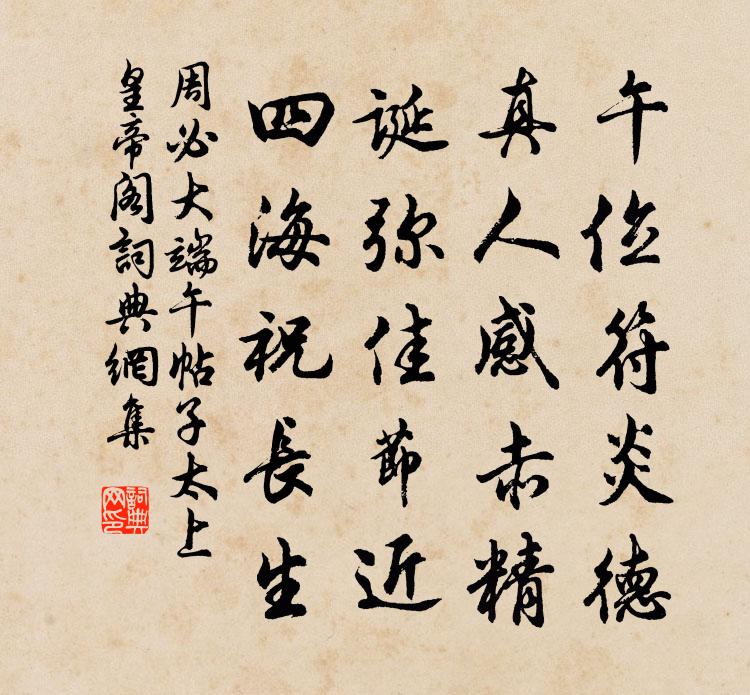 午位符炎德
真人感赤精
誕弥佳節近
四海祝長生
周必大端午帖子太上
皇帝阁詞典網集
詞典网印